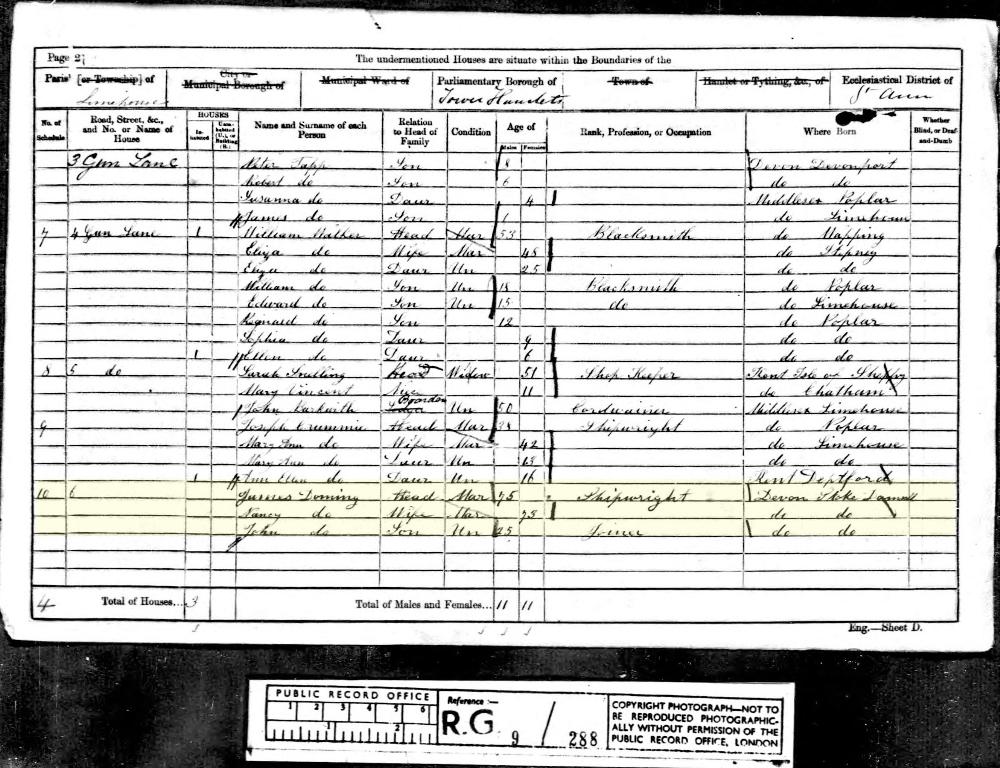 Page 2
The undermentioned Houses are situate within the Boundaries of the
Parish [or Township] of Limehouse
City or Municipal Borough of
Municipal Ward of
Parliamentary Borough of Tower Hamlets
Town of
Hamlet or Tything, &c., of
Ecclesiastical District of St Ann
No. of Schedule
Road, Street, &c., and No. or Name of House
HOUSES
In-habited
Unin-habited (U.), or Building (B.)
Name and Surname of each Person
Relation to Head of Family
Condition
Age of
Males
Females
Rank, Profession, or Occupation
Where Born
Whether Blind, or Deaf-and-Dumb
3 Gun Lane Peter Tapp Son 8 Devon Devonport
Robert do Son 6 do do
Susanna do Daur 4 Middlesex Poplar
James do Son 1 do Limehouse
7 4 Gun Lane 1 William Walker Head Mar 53 Blacksmith do Wapping
Eliza do Wife Mar 48 do Stepney
Eliza do Daur Un 25 do do
William do Son Un 18 Blacksmith do Poplar
Edward do Son Un 15 do do Limehouse
Reginald do Son 12 do Poplar
Sophia do Daur 9 do do
1 Ellen do Daur 6 do do
8 5 do Sarah Snelling Head Widow 51 Shop Keeper Kent Isle of Sheppy
Mary Vincent Niece 11 do Chatham
John Un 50 Cordwainer Middlesex Limehouse
9 Joseph Crummie Head Mar Shipwright do Poplar
Mary Ann do Wife Mar 42 do Limehouse
Mary Ann do Daur Un do do
1 Ann Ellen do Daur Un 16 Kent Deptford
10 6 James Doming Head Mar 75 Shipwright Devon Stoke Damerell
Nancy do Wife Mar 73 do do
John do Son Un 25 Joiner do do
4 Total of Houses... 3 Total of Males and Females... 11 11
Eng.—Sheet D.
PUBLIC RECORD OFFICE
1 2 3 4 5 6
1 2
Reference :—
R.G. 9 / 288
COPYRIGHT PHOTOGRAPH—NOT TO
BE REPRODUCED PHOTOGRAPHIC-
ALLY WITHOUT PERMISSION OF THE
PUBLIC RECORD OFFICE, LONDON